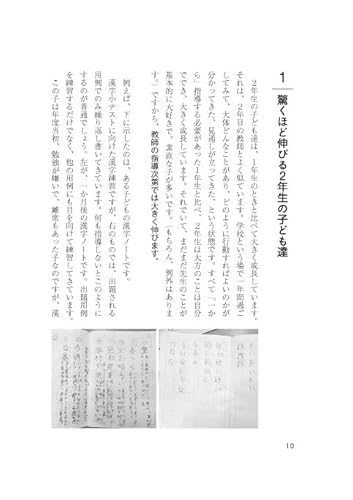 1 驚くほど伸びる2年生の子ども達
2年生の子ども達は、1年生のときと比べて大きく成長しています。
それは、2年目の教師とよく似ています。学校という場で一年間過ご
してみて、大体どんなことがあり、どのように行動すればよいのかが
分かってきた、見通しが立ってきた、という状態です。すべて「一か
ら」指導する必要があった1年生と比べ、2年生は大方のことは自分
ででき、大きく成長しています。それでいて、まだまだ先生のことが
基本的に大好きで、素直な子が多いです。(もちろん、例外はありま
す。)ですから、教師の指導次第では大きく伸びます。
例えば、下に示したのは、ある子どもの漢字ノートです。
漢字小テストに向けた漢字練習ですが、右のものでは、出題される
用例でのみ繰り返し書いてきています。何も指導しないとこのように
するのが普通でしょう。左が、一か月後の漢字ノートです。出題用例
を練習するだけでなく、他の用例にも目を向けて練習してきています。
この子は年度当初、勉強が嫌いで、離席もあった子なのですが、漢
10